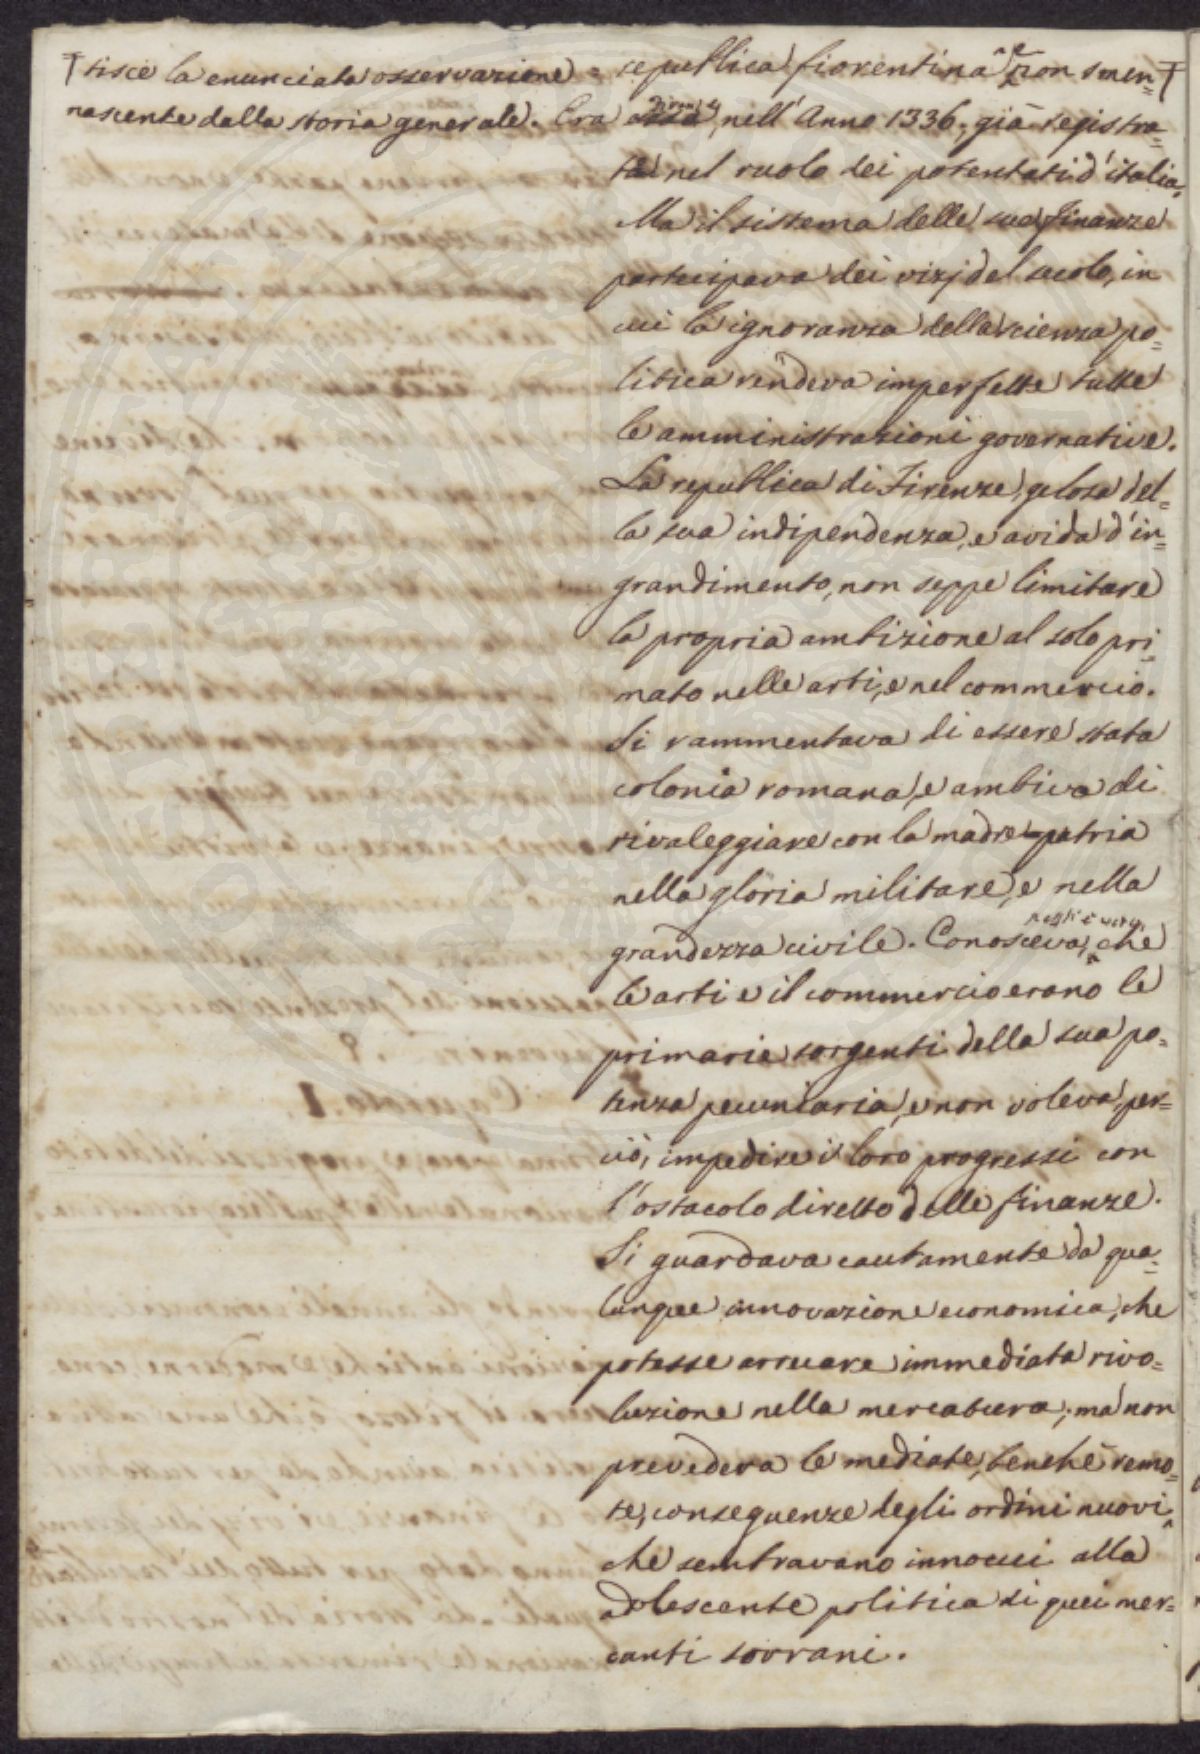 republica fiorentina e non smen=
tisce la enunciata osservazione =
nascente dalla storia generale. Era
nell'Anno 1336., già registra=
ta nel ruolo dei potentati d'italia.
Ma il sistema delle sue finanze
partecipava dei vizj del secolo, in
cui la ignoranza della scienza po=
litica rendeva imperfette tutte
le amministrazioni governative.
La republica di Firenze, gelosa del=
la sua indipendenza, e avida d'in=
grandimento, non seppe limitare
la propria ambizione al solo pri=
mato nelle arti, e nel commercio.
Si rammentava di essere stata
colonia romana, e ambiva di
rivaleggiare con la madre-patria
nella gloria militare, e nella
grandezza civile. Conosceva, che
le arti e il commercio erano le
primarie sorgenti della sua po=
tenza pecuniaria, e non voleva, per=
ciò, impedire i loro progressi con
l'ostacolo diretto delle finanze.
Si guardava cautamente da qua=
lunque innovazione economica, che
potesse arrecare immediata rivo=
luzione nella mercatura; ma non
prevedeva le mediate, benchè remo=
te, conseguenze degli ordini nuovi,
che sembravano innocui alla
adolescente politica di quei mer=
canti sovrani.